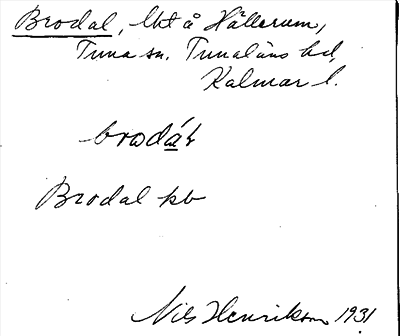 Brodal, lht å Hällerum,
Tuna sn. Tunaläns hd,
Kalmar l.
Brodal kb
Nils Henrikson 1931